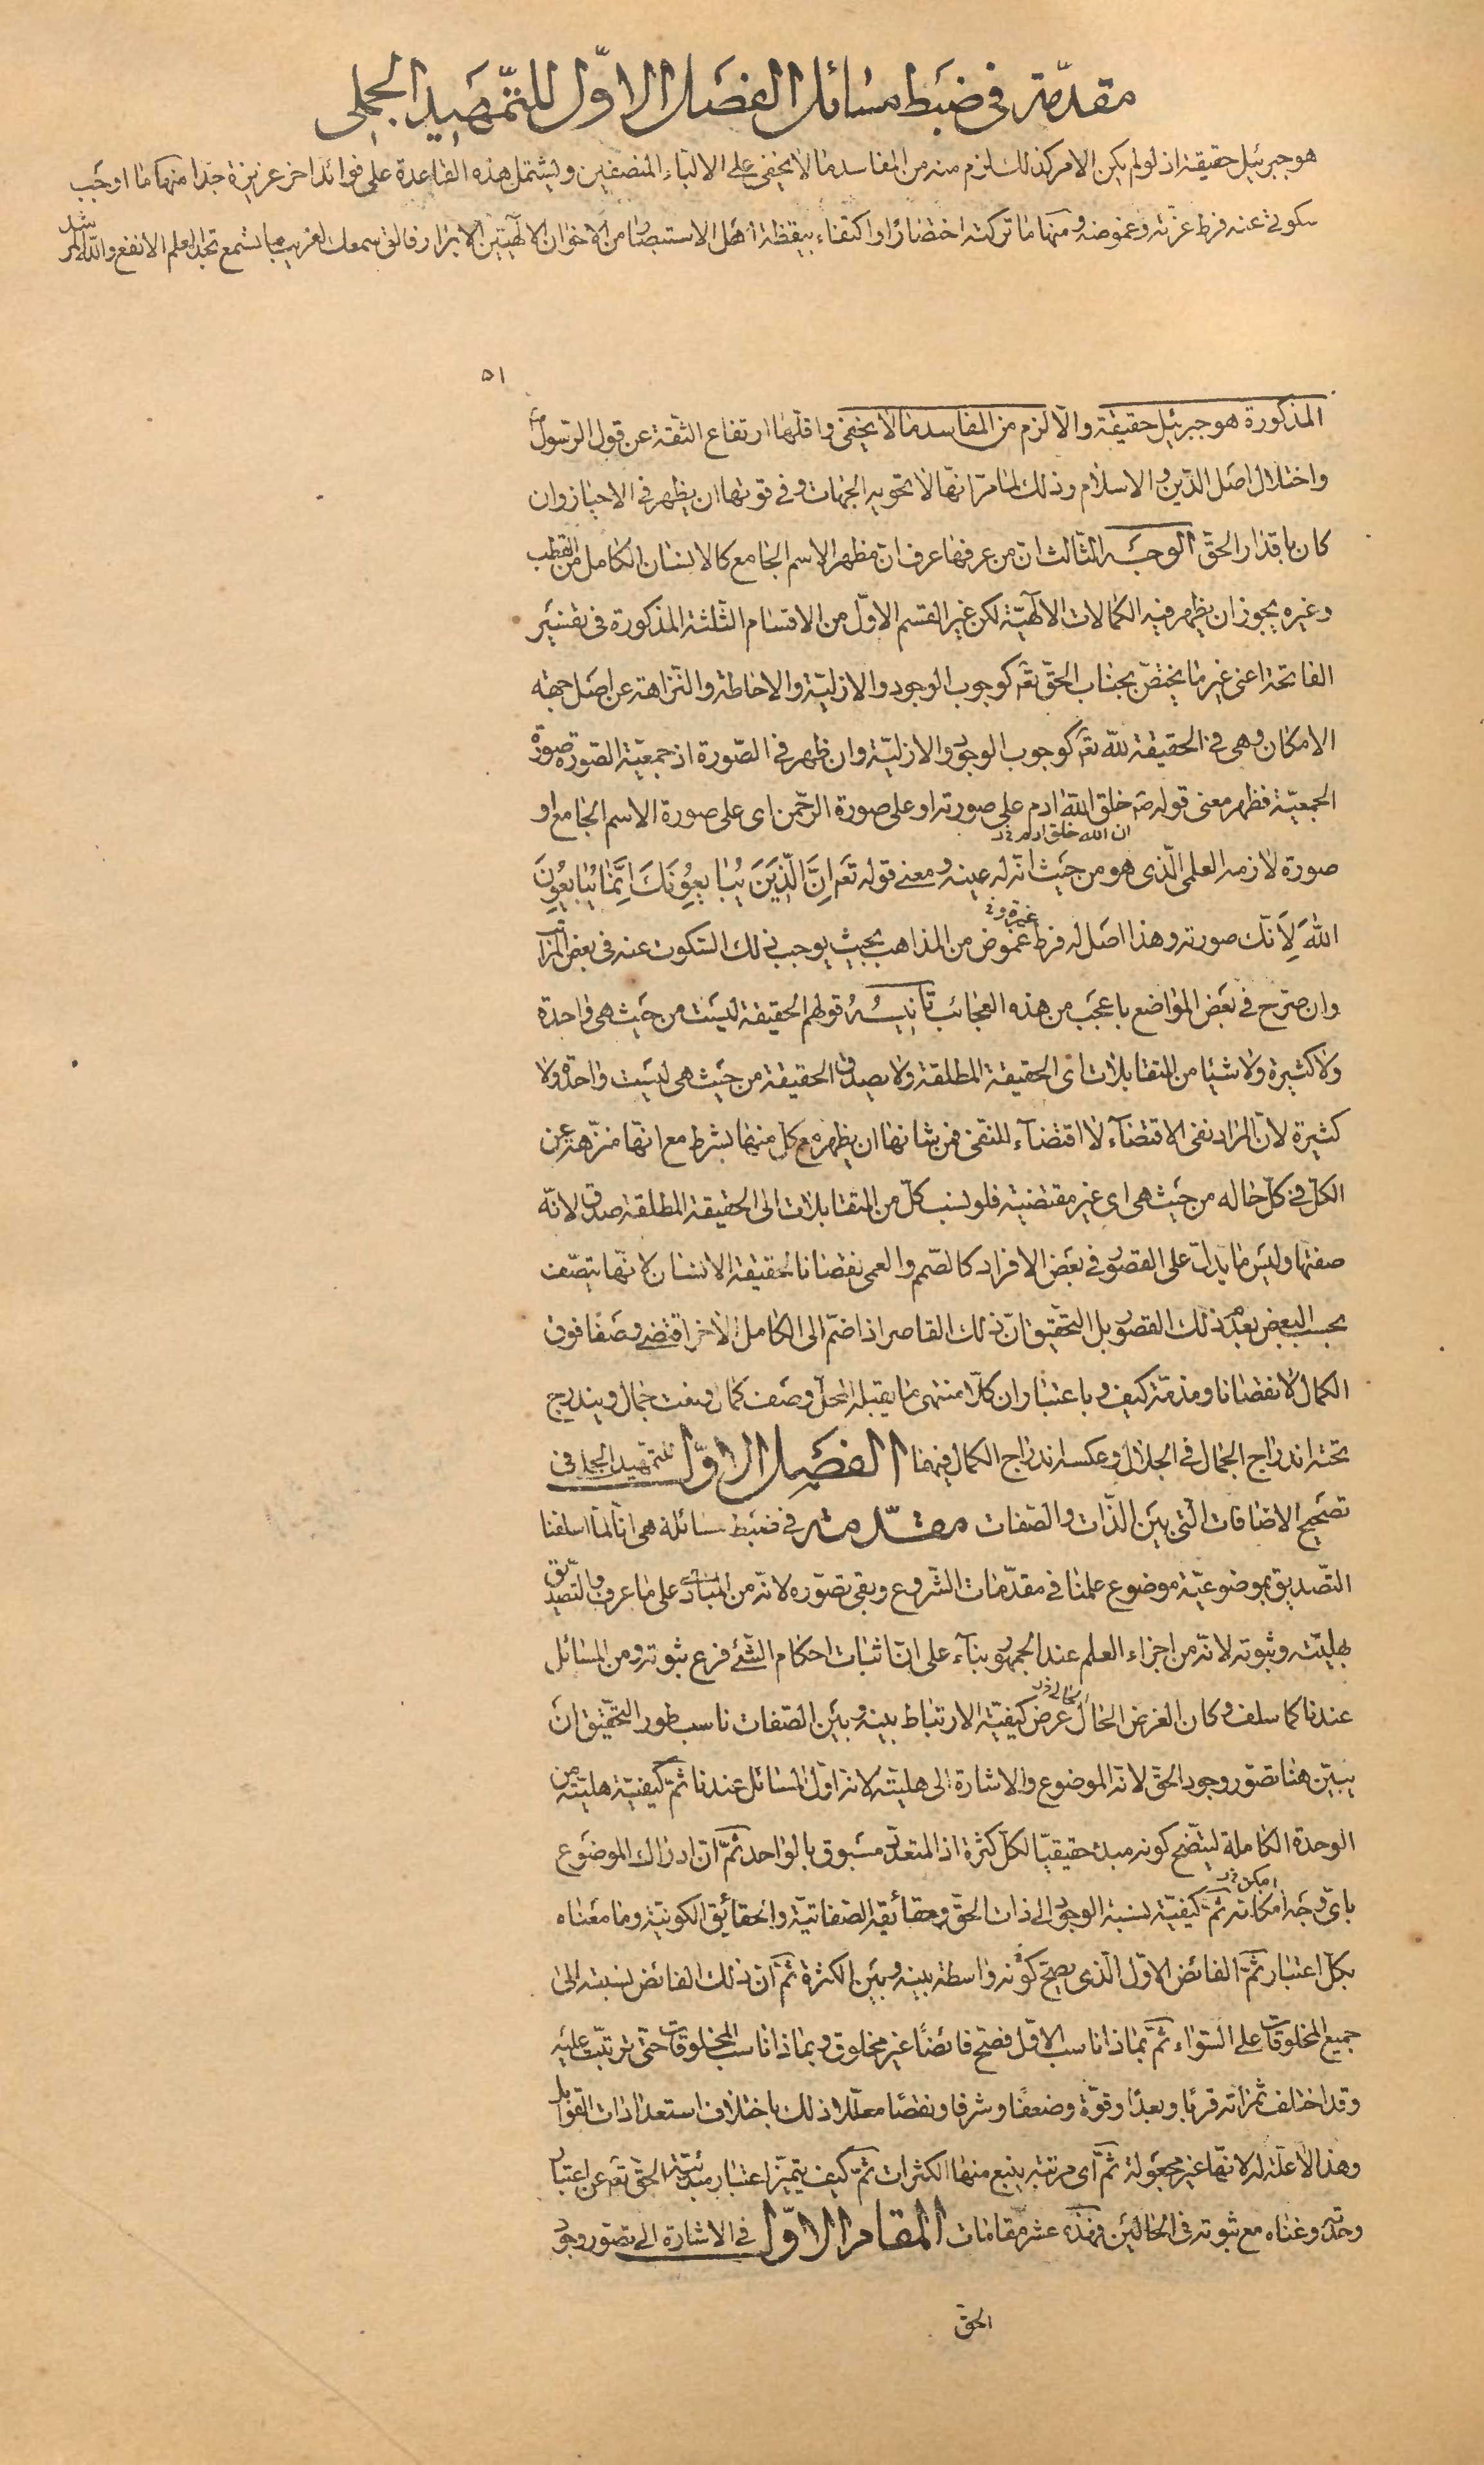 مقدّمة فى ضبط مسائل الفصل الاوّل للتّمهيد الجملى
هو جبرئيل حقيقة اذ لو لم يكن الامر كذلك لزم منه من المفاسد ما لا يخفى على الالبّاء المنصفين ويشتمل هذه القاعدة على فوائد اخر عزيزة جدا منها ما اوجب
سكوتى عنه فرط عزّته وغموضه ومنها ما تركته اختصارا واكتفاء بيقظة اهل الاستبصار من الاخوان الالهيّين الابرار فالق سمعك لغريب ما تسمع تجد العلم الانفع والله المرشد
٥١
المذكورة هو جبرئيل حقيقة والّا لزم من المفاسد ما لا يخفى واقلّها ارتفاع الثقة عن قول الرّسول صم
واختلال اصل الدّين والاسلام وذلك لما مرّ انّها لا تحويه الجهات وفى قوتها ان يظهر فى الاحياز وان
كان باقدار الحقّ الوجه الثّالث انّ من عرفها عرف انّ مظهر الاسم الجامع كالانسان الكامل من القطب
وغيره يجوز ان يظهر فيه الكمالات الالهيّة لكن غير القسم الاوّل من الاقسام الثّلثة المذكورة فى تفسير
الفاتحة اعنى غير ما يختصّ بجناب الحقّ تعه كوجوب الوجود والازليّة والاحاطة والنّزاهة عن اصل جهة
الامكان وهى فى الحقيقة لله تعه كوجوب الوجود والازليّة وان ظهر فى الصّورة اذ جمعيّة الصّورة صورة
الجمعيّة فظهر معنى قوله صم خلق الله ادم على صورته او على صورة الرّحمن اى على صورة الاسم الجامع او
ان الله خلق ادم خ ر
صورة لازمه العلمى الّذى هو من حيث انّه له عينه ومعنى قوله تعه اِنَّ الَّذينَ يُبايِعُونَكَ اِنَّما يُبايِعُونَ
اللهَ لِاَنّك صورته وهذا اصل له فرط غموض من المذاهب بحيث يوجب ذلك السّكوت عنه فى بعض المراتب
عزّة و خ
وان صرّح فى بعض المواضع باعجب من هذه العجائب تانيسٌ قولهم الحقيقة ليست من حيث هى واحدة
ولا كثيرة ولا شيئا من المتقابلات اى الحقيقة المطلقة ولا يصدق الحقيقة من حيث هى ليست واحدة ولا
كثيرة لانّ المراد نفى الاقتضآء لا اقتضآء النفى فمن شانها ان يظهر مع كلّ منهما بشرط مع انّها منزّهة عن
الكلّ فى كلّ حاله من حيث هى اى غير مقتضية فلو نسب كلّ من المتقابلات الى الحقيقة المطلقة صدق لانّه
صفتها وليس ما يدلّ على القصور فى بعض الافراد كالصّمم والعمى نقصانا لحقيقة الانسان لانّها يتصّف
بحسب البعض بعدم ذلك القصور بل التّحقيق انّ ذلك القاصر اذا ضمّ الى الكامل الاخر اقتضى وصفا فوق
الكمال لا نقصانا ومذمّة كيف وباعتبار ان كلّا منتهى ما يقبله المحلّ وصف كمال ونعت جمال ويندرج
تحته اندراج الجمال فى الجلال وعكسه اندراج الكمال فيهما الفصل الاوّل للتّمهيد الجملى فى
تصحيح الاضافات الّتى بين الذّات والصّفات مقدّمة فى ضبط مسائله هى انّا لمّا اسلفنا
التّصديق بموضوعيّة موضوع علمنا فى مقدّمات الشّروع وبقى تصوّره لانّه من المبادى على ما عرف والتّصديق
بهليّته وثبوته لانّه من اجزاء العلم عند الجمهور بنآء على انّ اثبات احكام الشّئ فرع ثبوته ومن المسائل
عندنا كما سلف وكان الغرض الحال عرض كيفيّة الارتباط بينه وبين الصّفات ناسب طور التّحقيق ان
يبيّن هنا تصوّر وجود الحقّ لانّه الموضوع والاشارة الى هليّته لانّه اوّل المسائل عندنا ثمّ كيفيّة هليّته من
الوحدة الكاملة ليتّضح كونه مبدء حقيقيّا لكلّ كثرة اذ المتعدّد مسبوق بالواحد ثمّ انّ ادراك الموضوع
باىّ وجه امكانه ثمّ كيفيّة نسبة الوجود الى ذات الحقّ وحقائقه الصّفاتيّة والحقائق الكونيّة وما معناه
امكن خ ر
بكلّ اعتبار ثمّ الفائض الاوّل الّذى يصحّ كونه واسطة بينه وبين الكثرة ثمّ انّ ذلك الفائض نسبته الى
جميع المخلوقات على السّواء ثمّ بماذا ناسب الاوّل فصحّ فائضًا غير مخلوق وبماذا ناسب المخلوقات حتّى ترتّبت عليه
وقد اختلف ثمراته قربا وبعدًا وقوّة وضعفًا وشرفا ونقصًا معلّلا ذلك باختلاف استعدادات القوابل
وهذا لا علّة له لانّها غير مجعولة ثمّ اى مرتبة ينبع منها الكثرات ثمّ كيف يتميّز اعتبار مبدئيّة الحقّ تعه عن اعتبار
وحدته وغناه مع ثبوته فى الحالين فهذه عشر مقامات المقام الاوّل فى الاشارة الى تصوّر وجود
الحقّ